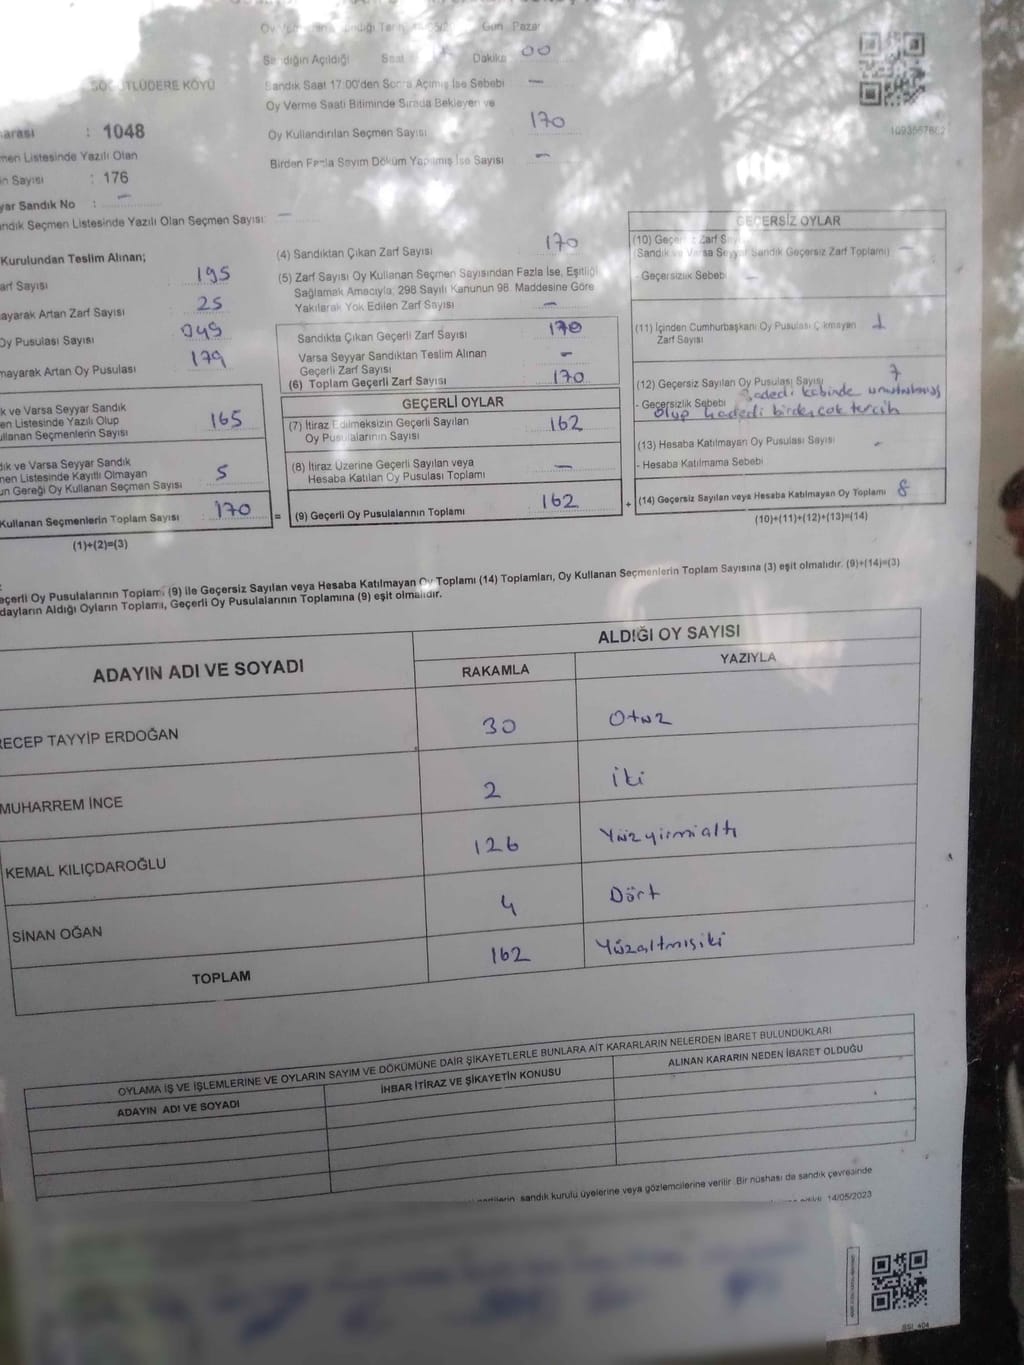 Gün Pazar
Sandığın Açıldığı Saat Dakika 00
Sandık Saat 17:00'den Sonra Açımış İse Sebebi —
Oy Verme Saati Bitiminde Sırada Bekleyen ve
Oy Kullandırılan Seçmen Sayısı 170
Birden Fazla Sayım Döküm Yapılmış İse Sayısı —
1093567862
KÖYÜ
: 1048
Listesinde Yazılı Olan
Sayısı : 176
Sandık No : —
Seçmen Listesinde Yazılı Olan Seçmen Sayısı: —
Kurulundan Teslim Alınan;
Sayısı 195
Artan Zarf Sayısı 25
Oy Pusulası Sayısı
Artan Oy Pusulası 179
ve Varsa Seyyar Sandık
Listesinde Yazılı Olup
Seçmenlerin Sayısı 165
ve Varsa Seyyar Sandık
Listesinde Kayıtlı Olmayan
Gereği Oy Kullanan Seçmen Sayısı 5
Kullanan Seçmenlerin Toplam Sayısı 170
(1)+(2)=(3)
(4) Sandıktan Çıkan Zarf Sayısı 170
(5) Zarf Sayısı Oy Kullanan Seçmen Sayısından Fazla İse, Eşitliği
Sağlamak Amacıyla; 298 Sayılı Kanunun 98. Maddesine Göre
Yakılarak Yok Edilen Zarf Sayısı —
Sandıkta Çıkan Geçerli Zarf Sayısı 170
Varsa Seyyar Sandıktan Teslim Alınan
Geçerli Zarf Sayısı —
(6) Toplam Geçerli Zarf Sayısı 170
GEÇERLİ OYLAR
(7) İtiraz Edilmeksizin Geçerli Sayılan
Oy Pusulalarının Sayısı 162
(8) İtiraz Üzerine Geçerli Sayılan veya
Hesaba Katılan Oy Pusulası Toplamı —
= (9) Geçerli Oy Pusulalarının Toplamı 162
GEÇERSİZ OYLAR
(10) Geçersiz Zarf
(Sandık ve Varsa Seyyar Sandık Geçersiz Zarf Toplamı) —
- Geçersizlik Sebebi —
(11) İçinden Cumhurbaşkanı Oy Pusulası Çıkmayan 1
Zarf Sayısı
(12) Geçersiz Sayılan Oy Pusulası Sayısı 7
- Geçersizlik Sebebi adedi kabinde unutulmuş
olup 4 adedi birden çok tercih
(13) Hesaba Katılmayan Oy Pusulası Sayısı -
- Hesaba Katılmama Sebebi
+ (14) Geçersiz Sayılan veya Hesaba Katılmayan Oy Toplamı 8
(10)+(11)+(12)+(13)=(14)
Oy Pusulalarının Toplamı (9) ile Geçersiz Sayılan veya Hesaba Katılmayan Oy Toplamı (14) Toplamları, Oy Kullanan Seçmenlerin Toplam Sayısına (3) eşit olmalıdır. (9)+(14)=(3)
Aldığı Oyların Toplamı, Geçerli Oy Pusulalarının Toplamına (9) eşit olmalıdır.
ADAYIN ADI VE SOYADI ALDIĞI OY SAYISI
RAKAMLA YAZIYLA
RECEP TAYYİP ERDOĞAN 30 Otuz
MUHARREM İNCE 2 İki
KEMAL KILIÇDAROĞLU 126 Yüzyirmialtı
SİNAN OĞAN 4 Dört
TOPLAM 162 Yüzaltmışiki
OYLAMA İŞ VE İŞLEMLERİNE VE OYLARIN SAYIM VE DÖKÜMÜNE DAİR ŞİKAYETLERLE BUNLARA AİT KARARLARIN NELERDEN İBARET BULUNDUKLARI
ADAYIN ADI VE SOYADI İHBAR İTİRAZ VE ŞİKAYETİN KONUSU ALINAN KARARIN NEDEN İBARET OLDUĞU
sandık kurulu üyelerine veya gözlemcilerine verilir. Bir nüshası da sandık çevresinde
14/05/2023